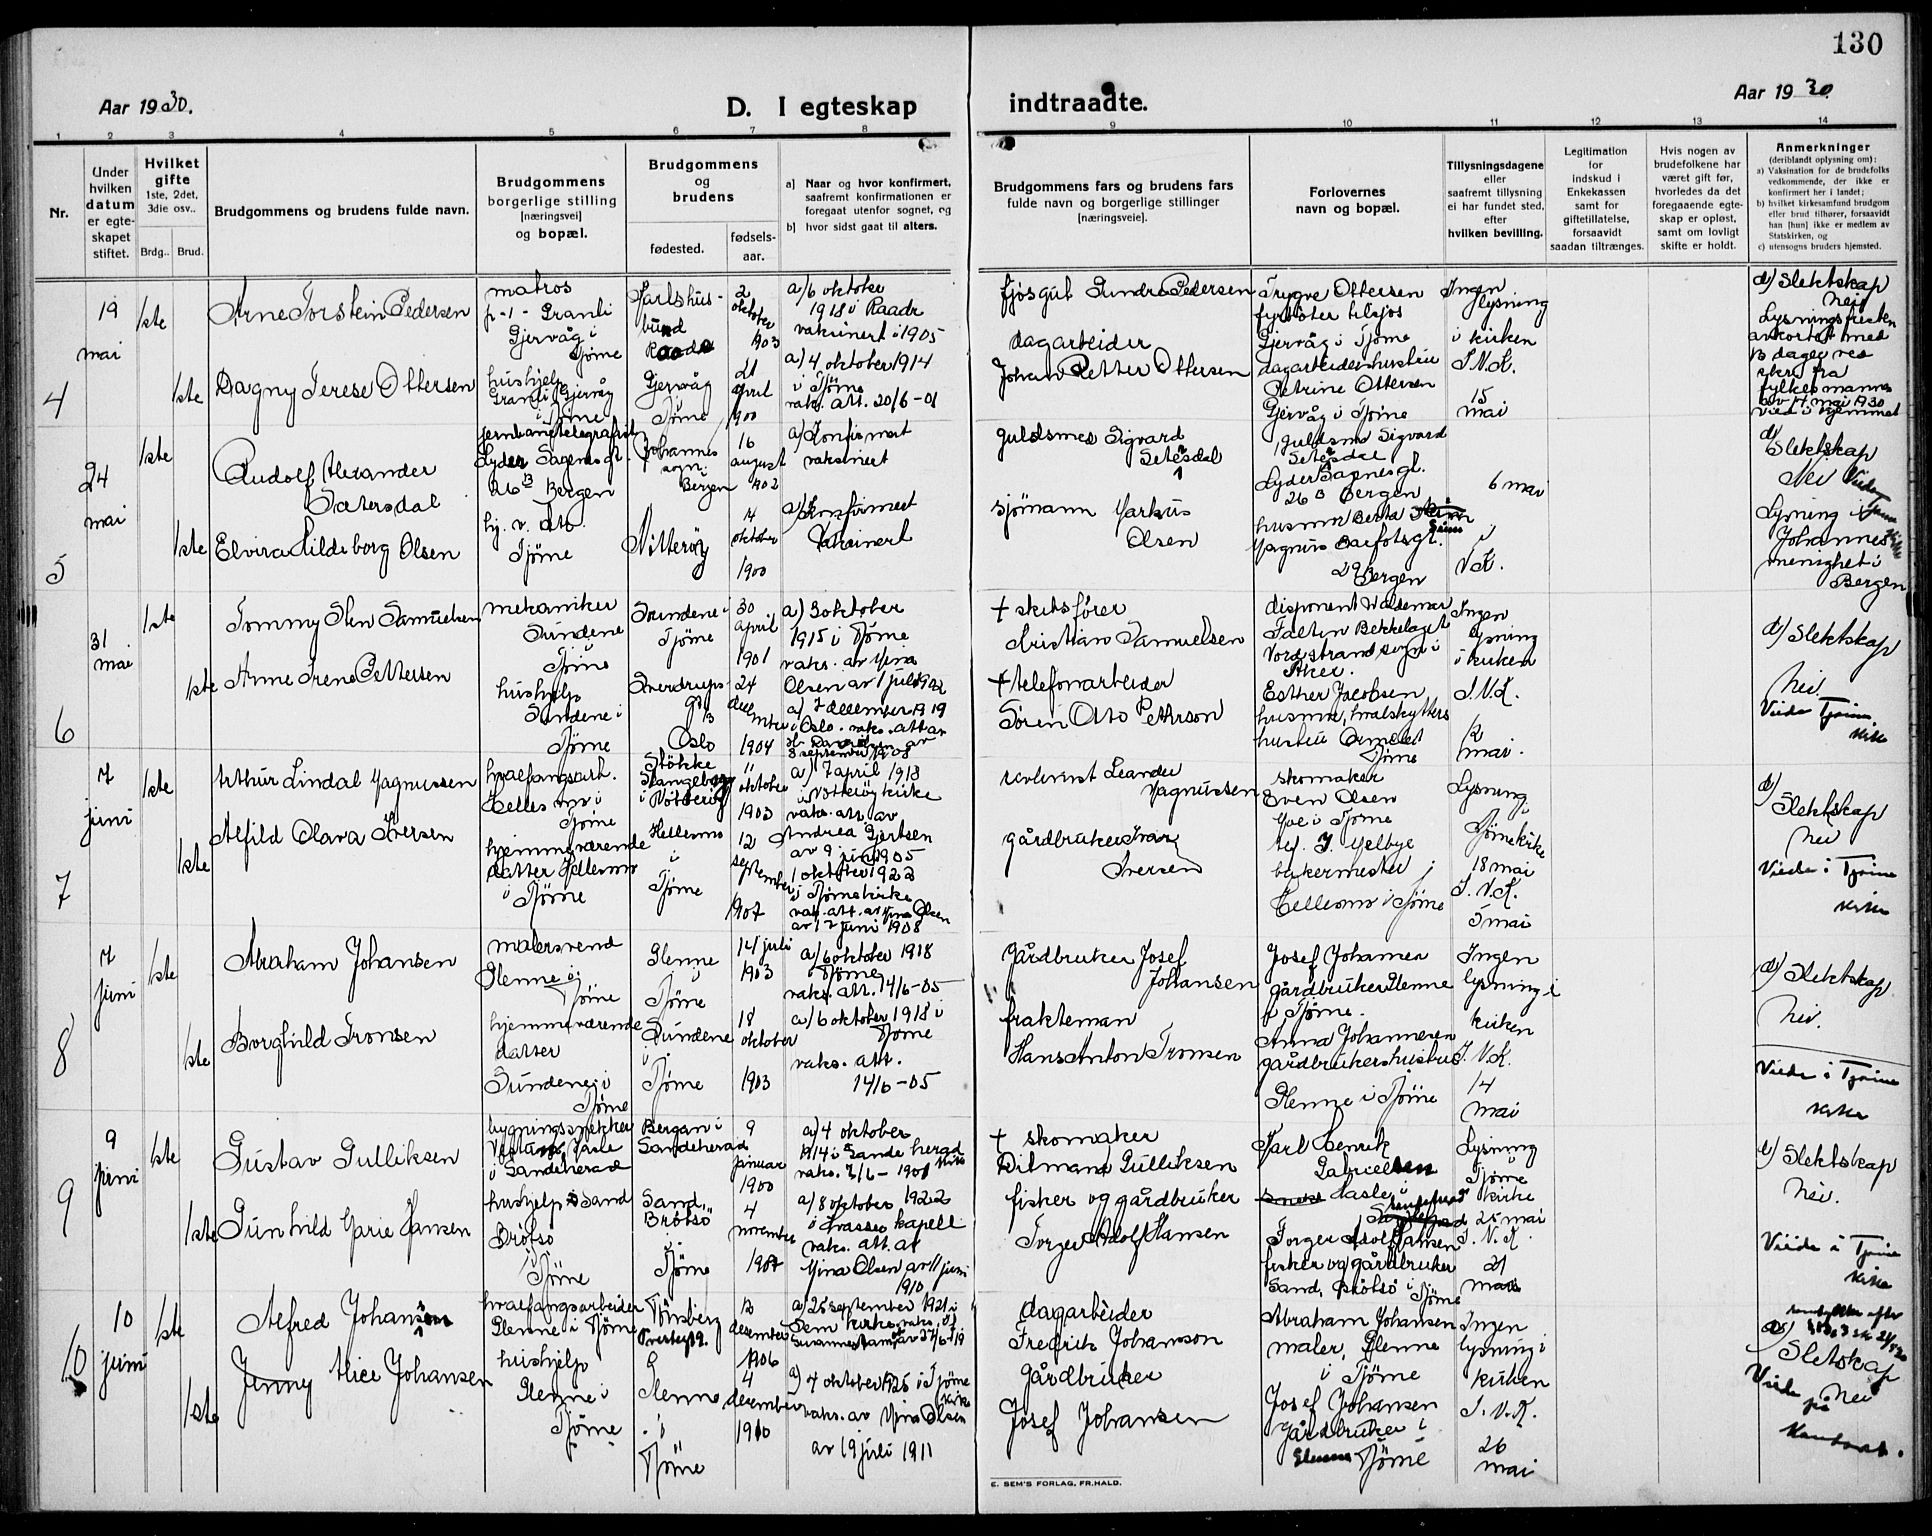 130
Aar 1930.
D. I egteskap
indtraadte.
Aar 1930.
1 2 3 4 5 6 7 8 9 10 11 12 13 14
Nr.
Under hvilken datum er egte- skapet stiftet.
Hvilket gifte 1ste, 2det, 3die osv..
Brdg.. Brud.
Brudgommens og brudens fulde navn.
Brudgommens borgerlige stilling [næringsvei] og bopæl.
Brudgommens og brudens
fødested.
fødsels- aar.
a] Naar og hvor konfirmert, saafremt konfirmationen er foregaat utenfor sognet, og
b] hvor sidst gaat til alters.
Brudgommens fars og brudens fars fulde navn og borgerlige stillinger [næringsveie].
Forlovernes navn og bopæl.
Tillysningsdagene eller saafremt tillysning ei har fundet sted, efter hvilken bevilling.
Legitimation for indskud i Enkekassen samt for giftetillatelse, forsaavidt saadan tiltrænges.
Hvis nogen av brudefolkene har været gift før, hvorledes da det foregaaende egte- skap er opløst, samt om lovligt skifte er holdt.
Anmerkninger (deriblandt oplysning om):
a) Vaksination for de brudefolks vedkommende, der ikke er konfirmert her i landet;
b) hvilket kirkesamfund brudgom eller brud tilhører, forsaavidt han [hun] ikke er medlem av Statskirken, og
c) utensogns bruders hjemsted.
4
19 mai
1ste
Arne Torstein Pedersen
matros
Granli
Gjervåg i
Tjøme
Karlshus-
bund
Raade
2
oktober
1903
a) 6 oktober
1918 i Raade
vaksinert i 1905
fjøsgut Gundro Pedersen
dagarbeider
Trygve Ottersen
fyrbøter tilsjøs
Gjervåg i Tjøme
Ingen
lysning
i kirken
S.V.K.
15
mai
d) Slektskap
nei
Lysningsfristen
avkortet med
fylkesmannen
av 17 mai 1930
viet i hjemmet
1ste
Dagny Terese Ottersen
hushjelp
Granli Gjervåg
i Tjøme
Gjervåg
Tjøme
21
april
1900
a) 4 oktober 1914
i Tjøme
vaks. att. 20/6-01
Johan Petter Ottersen
dagarbeidershustru
Petrine Ottersen
Gjervåg i Tjøme
5
24 mai
1ste
Rudolf Alexander
Sætersdal
jernbanetelegrafist
Lyder Sagensgt.
26 B Bergen
Johannes
sogn.
Bergen
16
august
1902
a) Konfirmert
vaksinert
guldsmed Sigvard
Setesdal
guldsmed Sigvard
Setesdal
Lyder Sagnes gt.
26 B Bergen
6 mai
d)
Slektskap
Nei
Lysning i
Johannes
menighet i
Bergen
1ste
Elvira Hildeborg Olsen
hj. v. dtt.
Tjøme
Nøtterøy
14
oktober
1900
a) Konfirmert
Vaksinert
sjømann Markus
Olsen
husmor Berta
Magnus Barfotsgt.
29 B Bergen
V.K.
6
31
mai
1ste
Tommy Sten Samuelsen
mekaniker
Sundene
Tjøme
Sundene i
Tjøme
30
april
1901
a) 3 oktober
1915 i Tjøme
vaks. av Mina
Olsen av 1 juli 1902
+ skibsfører
Kristian Samuelsen
disponent Waldemar
Falten Bekkelaget
Nordstrand sogn i
Aker.
Ingen
lysning
i kirken
S.V.K.
12
mai.
d) Slektskap
Nei.
Viede Tjøme
kirke
1ste
Anne Irene Pettersen
hushjelp
Sundene i
Tjøme
Sverdrups-
gt.
Oslo
24
desember
1904
a) 7 desember 1919
i Oslo. vaks. att. av
8 september 1908
+ telefonarbeider
Søren Otto Petterson
Esther Jacobsen
husmor, hvalskytters
hustru Ormelet
Tjøme
7
7
juni
1ste
Arthur Lindal Magnussen
hvalfangstarb.
Hellesmo i
Tjøme
Stokke
Stangeberg
i Nøtterøy
11
oktober
1903
a) 7 april 1918
i Nøtterøy kirke
vaks. att. av
Andrea Gjertsen
av 9 juni 1905
Leander
Magnussen
skomaker
Even Olsen
Moe i Tjøme
Lysning
i
Tjøme kirke
18 mai
S.V.K.
5 mai
d)
Slektskap
Nei
Viede i Tjøme
kirke
1ste
Alfild Olava Iversen
hjemmeværende
datter Hellesmo
i Tjøme
Hellesmo
i
Tjøme
12
september
1907
1 oktober 1922
i Tjøme kirke
vaks. att. av Mina Olsen
av 17 juni 1908
gårdbruker Ivar
Iversen
bakermester
Hellesmo i Tjøme
8
7
juni
1ste
Abraham Johansen
malersvend
Glenne i
Tjøme
Glenne
i
Tjøme
14 juli
1903
a) 6 oktober 1918
Tjøme
vaks. att. 14/6-05
gårdbruker Josef
Johansen
Josef Johansen
gårdbruker Glenne
i Tjøme.
Ingen
lysning i
kirken
S.V.K.
14
mai
d) Slektskap
Nei.
Viede i Tjøme
kirke
1ste
Borghild Tronsen
hjemmeværende
datter
Sundene i
Tjøme
Sundene
i
Tjøme
18
oktober
1903
a) 6 oktober 1918 i
Tjøme
vaks. att.
14/6-05
frakteman
Hans Anton Tronsen
Anna Johannesen
gårdbrukershustru
Glenne i Tjøme
9
9
juni
1ste
Gustav Gulliksen
bygningssnekker
i Sandeherad
Bergan i
Sandeherad
9
januar
1900
a) 4 oktober
1914 i Sandeherad
vaks. 7/6-1901
+ skomaker
Ditmann Gulliksen
Karl Henrik
Gabrielsen
Hasle i
Lysning
i
Tjøme
kirke
25 mai
S.V.K.
21
mai
d) Slektskap
Nei.
Viede i Tjøme
kirke
1ste
Gunhild Marie Hansen
hushjelp Sand
Brøtsø
i Tjøme
Sand,
Brøtsø
i
Tjøme
4
november
1907
a) 8 oktober 1922
i kapell
vaks. att. av
Mina Olsen av 11 juni
1910
fisker og gårdbruker
Torger Adolf Hansen
Torger Adolf Hansen
fisker og gårdbruker
Sand, Brøtsø i Tjøme
10
10
juni
1ste
Alfred Johansson
hvalfangstarbeider
Glenne i Tjøme
Tønsberg
12
desember
1906
a) 25 september 1921 i
Sem kirke
dagarbeider
Fredrik Johansson
Abraham Johansen
maler, Glenne
i Tjøme
Ingen
lysning i
kirken
S.V.K.
26
mai
d)
Slektskap
Nei
Viede på
kontoret.
1ste
Jenny Alice Johansen
hushjelp
Glenne i
Tjøme
Glenne
i
Tjøme
4
desember
1910
a) 4 oktober 1925 i Tjøme
kirke
vaks. av Mina Olsen
av 19 juli 1911
gårdbruker
Josef Johansen
Josef Johansen
Gårdbruker i
Glenne Tjøme
E. SEM'S FORLAG, FR.HALD.